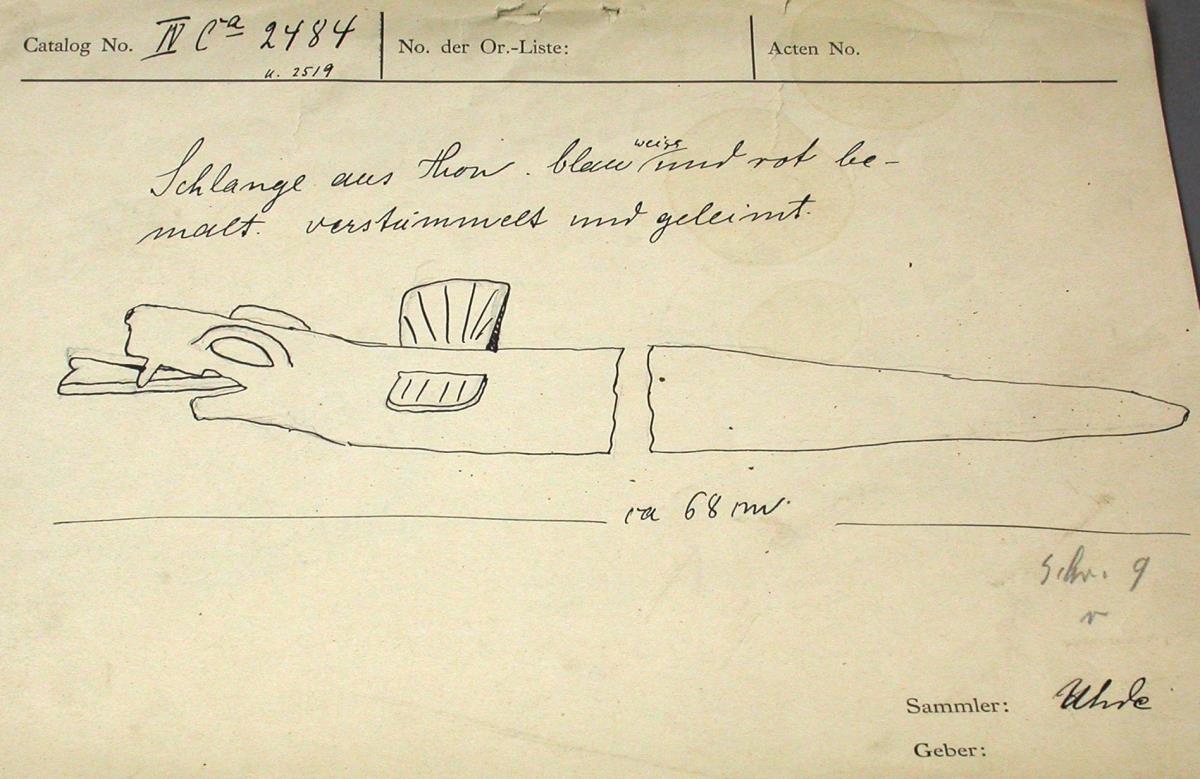 Catalog No. IV Ca 2484 No. der Or.-Liste: Acten No.
u. 2519
Schlange aus Thon. blau weiss und rot be-
malt. verstümmelt und geleimt.
ca 68 cm
Schr. 9
v
Sammler: Uhde
Geber: